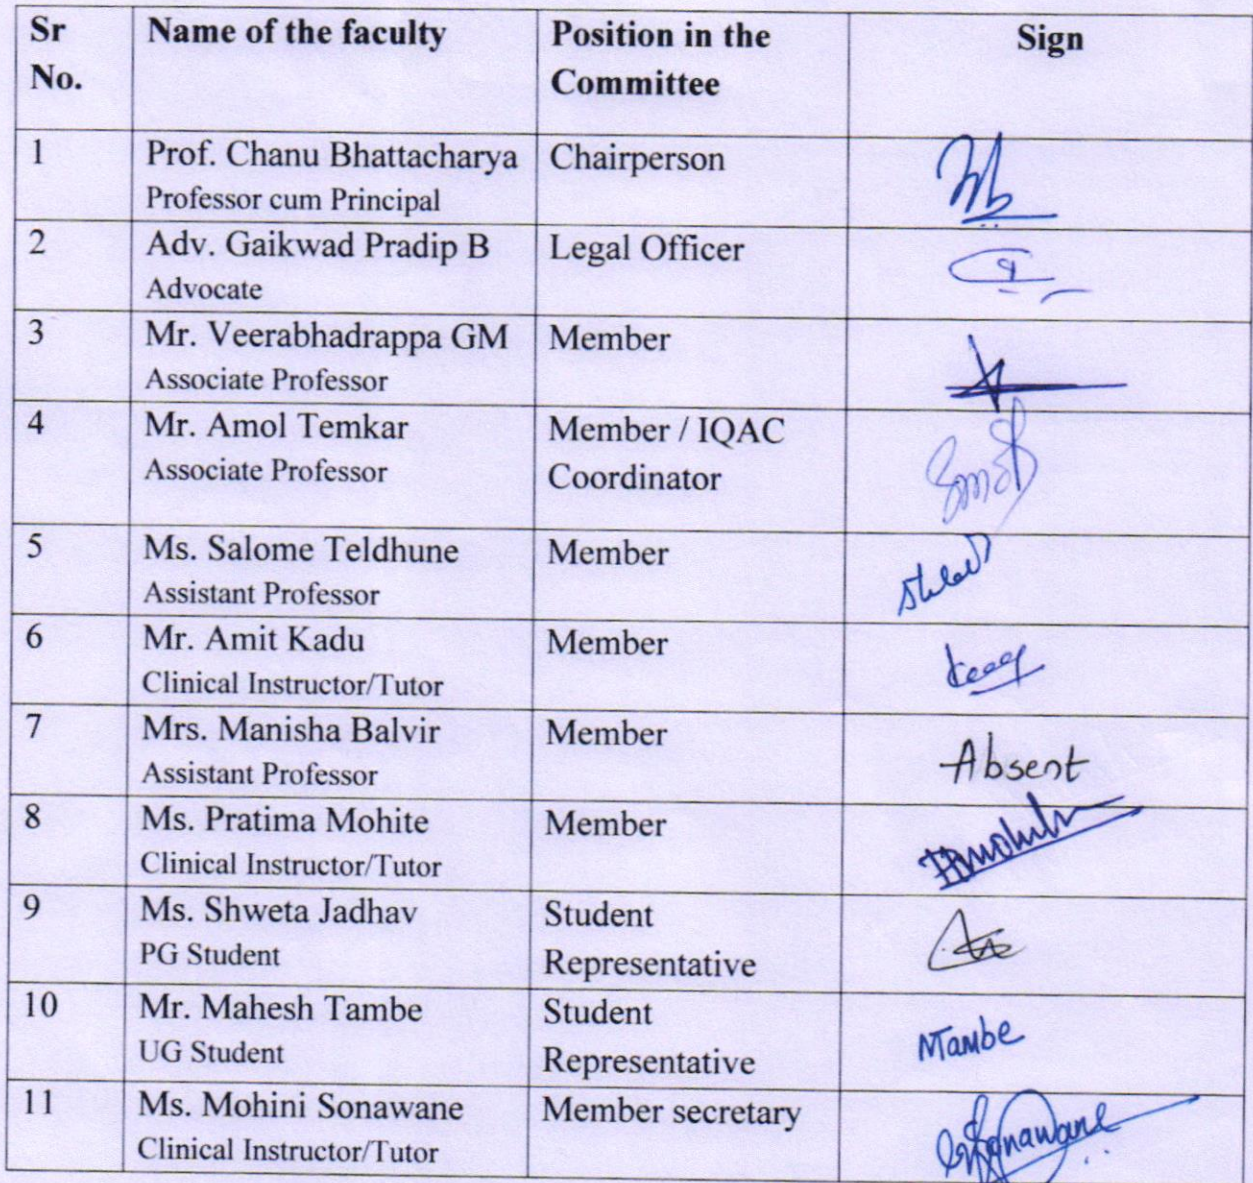 Sr No.
Name of the faculty
Position in the Committee
Sign
1
Prof. Chanu Bhattacharya
Professor cum Principal
Chairperson
2
Adv. Gaikwad Pradip B
Advocate
Legal Officer
3
Mr. Veerabhadrappa GM
Associate Professor
Member
4
Mr. Amol Temkar
Associate Professor
Member / IQAC
Coordinator
5
Ms. Salome Teldhune
Assistant Professor
Member
6
Mr. Amit Kadu
Clinical Instructor/Tutor
Member
7
Mrs. Manisha Balvir
Assistant Professor
Member
Absent
8
Ms. Pratima Mohite
Clinical Instructor/Tutor
Member
9
Ms. Shweta Jadhav
PG Student
Student
Representative
10
Mr. Mahesh Tambe
UG Student
Student
Representative
MTambe
11
Ms. Mohini Sonawane
Clinical Instructor/Tutor
Member secretary